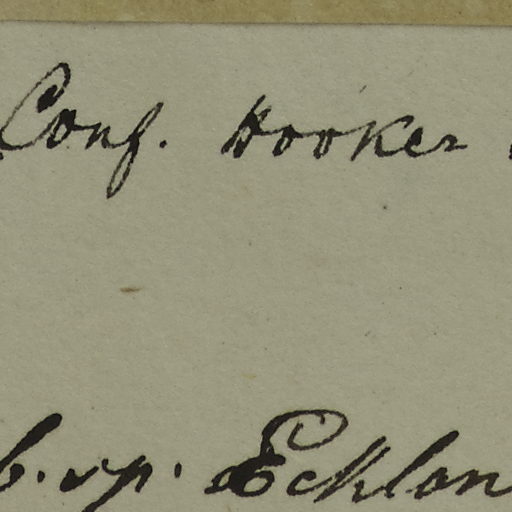 Conf. Hooker
b. sp. Ecklon